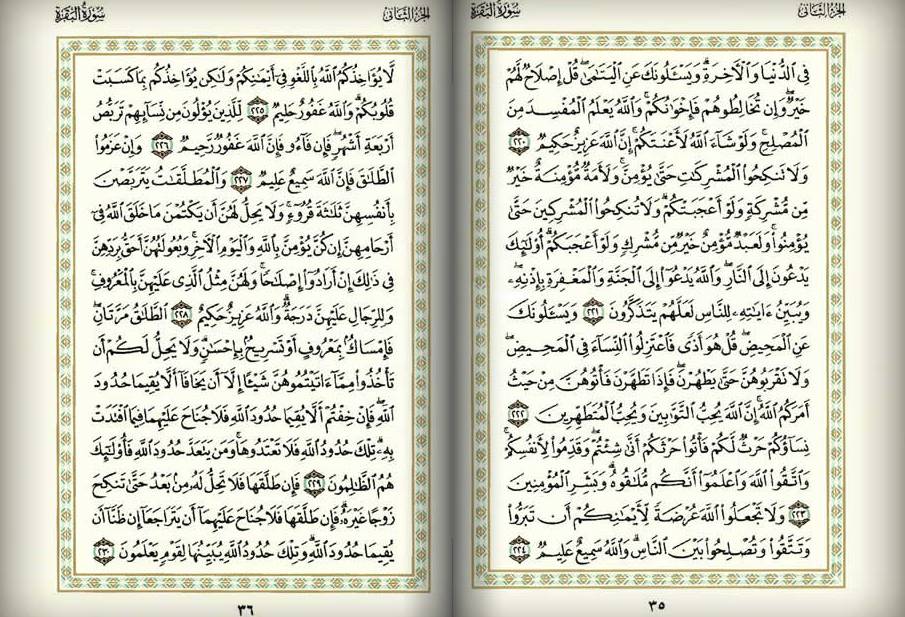 الجزء الثاني
سورة البقرة
فِي الدُّنْيَا وَالْآخِرَةِ ۗ وَيَسْـَٔلُونَكَ عَنِ الْيَتَـٰمَىٰ ۖ قُلْ إِصْلَاحٌ لَّهُمْ
خَيْرٌ ۖ وَإِن تُخَالِطُوهُمْ فَإِخْوَٰنُكُمْ ۚ وَاللَّهُ يَعْلَمُ الْمُفْسِدَ مِنَ
الْمُصْلِحِ ۚ وَلَوْ شَآءَ اللَّهُ لَأَعْنَتَكُمْ ۚ إِنَّ اللَّهَ عَزِيزٌ حَكِيمٌ ٢٢٠
وَلَا تَنكِحُوا۟ الْمُشْرِكَـٰتِ حَتَّىٰ يُؤْمِنَّ ۚ وَلَأَمَةٌ مُّؤْمِنَةٌ خَيْرٌ
مِّن مُّشْرِكَةٍ وَلَوْ أَعْجَبَتْكُمْ ۗ وَلَا تُنكِحُوا۟ الْمُشْرِكِينَ حَتَّىٰ
يُؤْمِنُوا۟ ۚ وَلَعَبْدٌ مُّؤْمِنٌ خَيْرٌ مِّن مُّشْرِكٍ وَلَوْ أَعْجَبَكُمْ ۗ أُو۟لَـٰٓئِكَ
يَدْعُونَ إِلَى النَّارِ ۖ وَاللَّهُ يَدْعُوٓا۟ إِلَى الْجَنَّةِ وَالْمَغْفِرَةِ بِإِذْنِهِۦ ۖ
وَيُبَيِّنُ ءَايَـٰتِهِۦ لِلنَّاسِ لَعَلَّهُمْ يَتَذَكَّرُونَ ٢٢١ وَيَسْـَٔلُونَكَ
عَنِ الْمَحِيضِ ۖ قُلْ هُوَ أَذًى فَاعْتَزِلُوا۟ النِّسَآءَ فِي الْمَحِيضِ ۖ
وَلَا تَقْرَبُوهُنَّ حَتَّىٰ يَطْهُرْنَ ۖ فَإِذَا تَطَهَّرْنَ فَأْتُوهُنَّ مِنْ حَيْثُ
أَمَرَكُمُ اللَّهُ ۚ إِنَّ اللَّهَ يُحِبُّ التَّوَّٰبِينَ وَيُحِبُّ الْمُتَطَهِّرِينَ ٢٢٢
نِسَآؤُكُمْ حَرْثٌ لَّكُمْ فَأْتُوا۟ حَرْثَكُمْ أَنَّىٰ شِئْتُمْ ۖ وَقَدِّمُوا۟ لِأَنفُسِكُمْ ۚ
وَاتَّقُوا۟ اللَّهَ وَاعْلَمُوٓا۟ أَنَّكُم مُّلَـٰقُوهُ ۗ وَبَشِّرِ الْمُؤْمِنِينَ
٢٢٣ وَلَا تَجْعَلُوا۟ اللَّهَ عُرْضَةً لِّأَيْمَـٰنِكُمْ أَن تَبَرُّوا۟
وَتَتَّقُوا۟ وَتُصْلِحُوا۟ بَيْنَ النَّاسِ ۗ وَاللَّهُ سَمِيعٌ عَلِيمٌ ٢٢٤
٣٥
الجزء الثاني
سورة البقرة
لَّا يُؤَاخِذُكُمُ اللَّهُ بِاللَّغْوِ فِيٓ أَيْمَـٰنِكُمْ وَلَـٰكِن يُؤَاخِذُكُم بِمَا كَسَبَتْ
قُلُوبُكُمْ ۗ وَاللَّهُ غَفُورٌ حَلِيمٌ ٢٢٥ لِّلَّذِينَ يُؤْلُونَ مِن نِّسَآئِهِمْ تَرَبُّصُ
أَرْبَعَةِ أَشْهُرٍ ۖ فَإِن فَآءُو فَإِنَّ اللَّهَ غَفُورٌ رَّحِيمٌ ٢٢٦ وَإِنْ عَزَمُوا۟
الطَّلَـٰقَ فَإِنَّ اللَّهَ سَمِيعٌ عَلِيمٌ ٢٢٧ وَالْمُطَلَّقَـٰتُ يَتَرَبَّصْنَ
بِأَنفُسِهِنَّ ثَلَـٰثَةَ قُرُوٓءٍ ۚ وَلَا يَحِلُّ لَهُنَّ أَن يَكْتُمْنَ مَا خَلَقَ اللَّهُ فِيٓ
أَرْحَامِهِنَّ إِن كُنَّ يُؤْمِنَّ بِاللَّهِ وَالْيَوْمِ الْآخِرِ ۚ وَبُعُولَتُهُنَّ أَحَقُّ بِرَدِّهِنَّ
فِي ذَٰلِكَ إِنْ أَرَادُوٓا۟ إِصْلَـٰحًا ۚ وَلَهُنَّ مِثْلُ الَّذِي عَلَيْهِنَّ بِالْمَعْرُوفِ ۚ
وَلِلرِّجَالِ عَلَيْهِنَّ دَرَجَةٌ ۗ وَاللَّهُ عَزِيزٌ حَكِيمٌ ٢٢٨ الطَّلَـٰقُ مَرَّتَانِ ۖ
فَإِمْسَاكٌۢ بِمَعْرُوفٍ أَوْ تَسْرِيحٌۢ بِإِحْسَـٰنٍ ۗ وَلَا يَحِلُّ لَكُمْ أَن
تَأْخُذُوا۟ مِمَّآ ءَاتَيْتُمُوهُنَّ شَيْـًٔا إِلَّآ أَن يَخَافَآ أَلَّا يُقِيمَا حُدُودَ
اللَّهِ ۖ فَإِنْ خِفْتُمْ أَلَّا يُقِيمَا حُدُودَ اللَّهِ فَلَا جُنَاحَ عَلَيْهِمَا فِيمَا افْتَدَتْ
بِهِۦ ۗ تِلْكَ حُدُودُ اللَّهِ فَلَا تَعْتَدُوهَا ۚ وَمَن يَتَعَدَّ حُدُودَ اللَّهِ فَأُو۟لَـٰٓئِكَ
هُمُ الظَّـٰلِمُونَ ٢٢٩ فَإِن طَلَّقَهَا فَلَا تَحِلُّ لَهُۥ مِنۢ بَعْدُ حَتَّىٰ تَنكِحَ
زَوْجًا غَيْرَهُۥ ۗ فَإِن طَلَّقَهَا فَلَا جُنَاحَ عَلَيْهِمَآ أَن يَتَرَاجَعَآ إِن ظَنَّآ أَن
يُقِيمَا حُدُودَ اللَّهِ ۗ وَتِلْكَ حُدُودُ اللَّهِ يُبَيِّنُهَا لِقَوْمٍ يَعْلَمُونَ ٢٣٠
٣٦